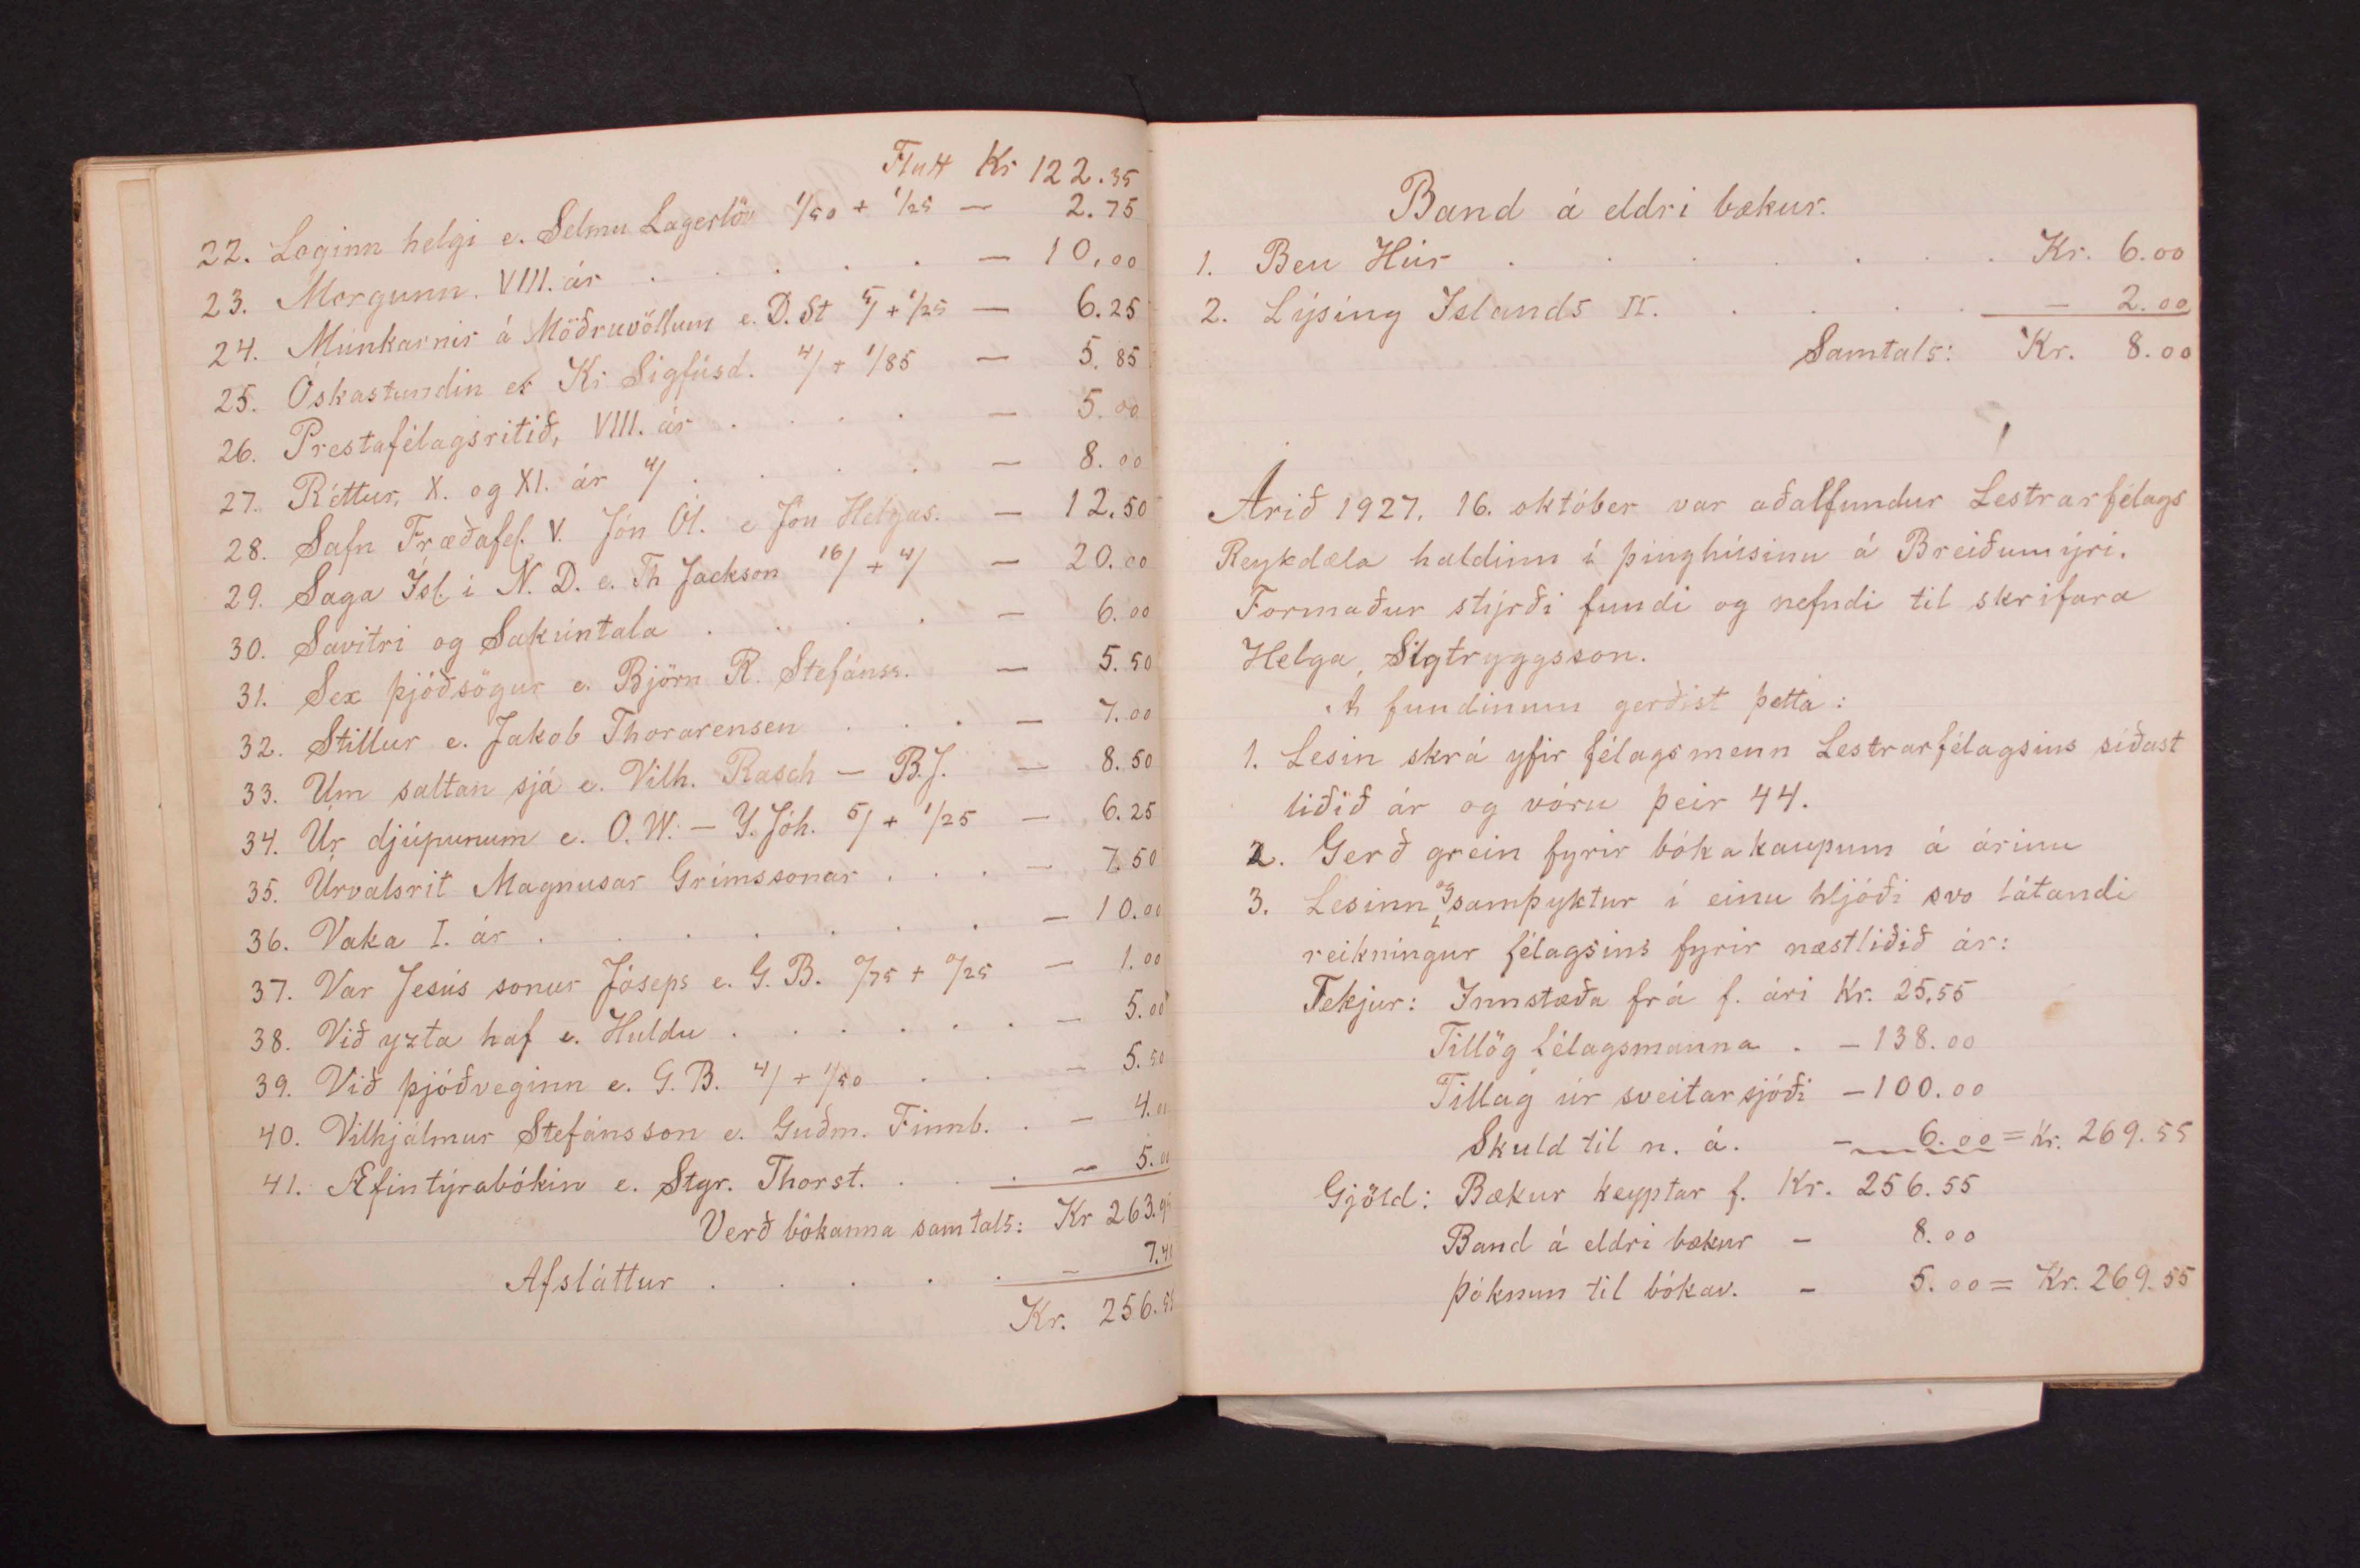 Flutt Kr 122.35
22. Loginn helgi e. Selmu Lagerlöv 1/50 + 1/25 — 2.75
23. Morgunn. VIII. ár . . . . . — 10.00
24. Múnkarnir á Möðruvöllum e. D. St 5/ + 1/25 — 6.25
25. Óskastundin e. Kr. Sigfúsd. 4/ + 1/85 — 5.85
26. Prestafélagsritið, VIII. ár . . . . — 5.00
27. Réttur, X. og XI. ár 4/ . . . . — 8.00
28. Safn Fræðafél. V. Jón Ól. e Jón Helgas. — 12.50
29. Saga Ísl. í N. D. e. Th Jackson 16/ + 4/ — 20.00
30. Savitri og Sakúntala . . . . — 6.00
31. Sex þjóðsögur e. Björn R. Stefánss. — 5.50
32. Stillur e. Jakob Thorarensen . . . — 7.00
33. Um saltan sjá e. Vilh. Rasch — B.J. — 8.50
34. Úr djúpunum e. O.W. — Y. Jóh. 5/ + 1/25 — 6.25
35. Úrvalsrit Magnusar Grímssonar . . . — 7.50
36. Vaka I. ár . . . . . . . — 10.00
37. Var Jesús sonur Jóseps e. G. B. 0/75 + 0/25 — 1.00
38. Við yzta haf e. Huldu . . . . . . — 5.00
39. Við þjóðveginn e. G. B. 4/ + 1/50 . . — 5.50
40. Vilhjálmur Stefánsson e. Guðm. Finnb. . — 4.00
41. Æfintýrabókin e. Stgr. Thorst. . . . — 5.00
Verð bókanna samtals: Kr 263.9
Afsláttur . . . . . — 7.4
Kr. 256.5
Band á eldri bækur.
1. Ben Húr . . . . . . . Kr. 6.00
2. Lýsing Islands II. . . . . — 2.00
Samtals: Kr. 8.00
Árið 1927, 16. október var aðalfundur Lestrarfélags
Reykdæla haldinn í þinghúsinu á Breiðumýri.
Formaður stýrði fundi og nefndi til skrifara
Helga Sigtryggsson.
Á fundinum gerðist þetta:
1. Lesin skrá yfir félagsmenn Lestrarfélagsins síðast
liðið ár og vóru þeir 44.
2. Gerð grein fyrir bókakaupum á árinu
3. Lesinn og samþyktur í einu hljóði svo látandi
reikningur félagsins fyrir næstliðið ár:
Tekjur: Innstæða frá f. ári Kr. 25.55
Tillög félagsmanna . — 138.00
Tillag úr sveitarsjóði — 100.00
Skuld til n. á. — 6.00 = Kr. 269.55
Gjöld: Bækur keyptar f. Kr. 256.55
Band á eldri bækur — 8.00
Þóknun til bókav. — 5.00 = Kr. 269.55